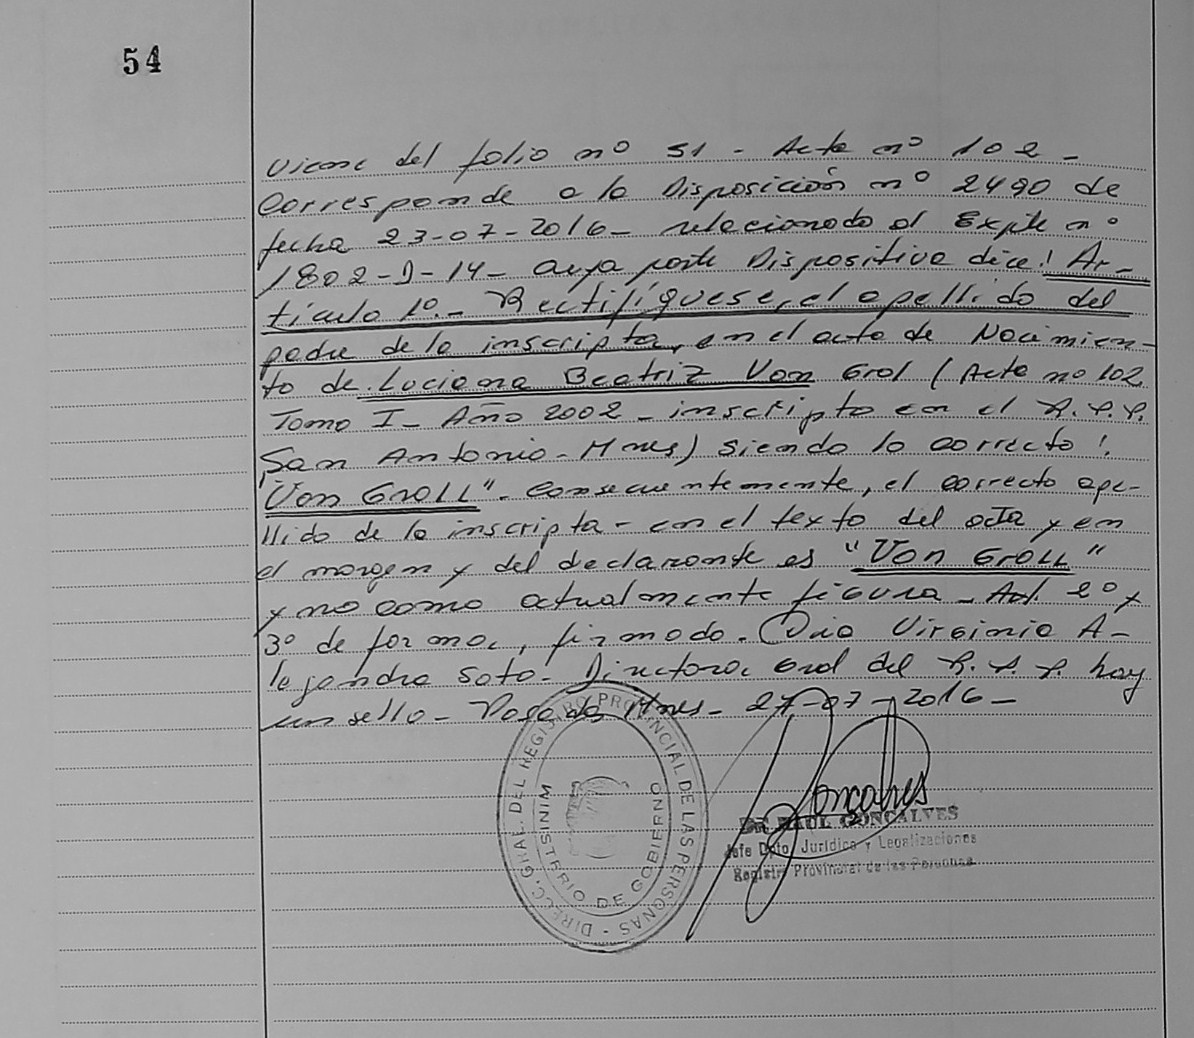 54
Viene del folio nº 51 - Acta nº 102 -
Corresponde a la Disposición nº 2490 de
fecha 23-07-2016 - relacionado al Expte nº
1802-D-14 - cuya parte Dispositiva dice: Ar-
tículo 1º.- Rectifíquese, el apellido del
padre de la inscripta, en el acta de Nacimien-
to de Luciana Beatriz Von Grol (Acta nº 102
Tomo I - Año 2002 - inscripto en el R.P.P.
San Antonio - Mnes) siendo lo correcto:
"Von GROLL". Consecuentemente, el correcto ape-
llido de la inscripta - en el texto del acta y en
el margen y del declarante es "Von GROLL"
y no como actualmente figura - Art. 2º y
3º de forma, firmado. Virginia A-
lejandra Soto - Directora Gral del R.P.P. hay
un sello - Posadas, Mnes - 27-07-2016 -
DIRECC. GRAL. DEL REGISTRO PROVINCIAL DE LAS PERSONAS -
MINISTERIO DE GOBIERNO
Goncalves
DR RAUL GONCALVES
Jefe Dpto. Jurídica y Legalizaciones
Registro Provincial de las Personas